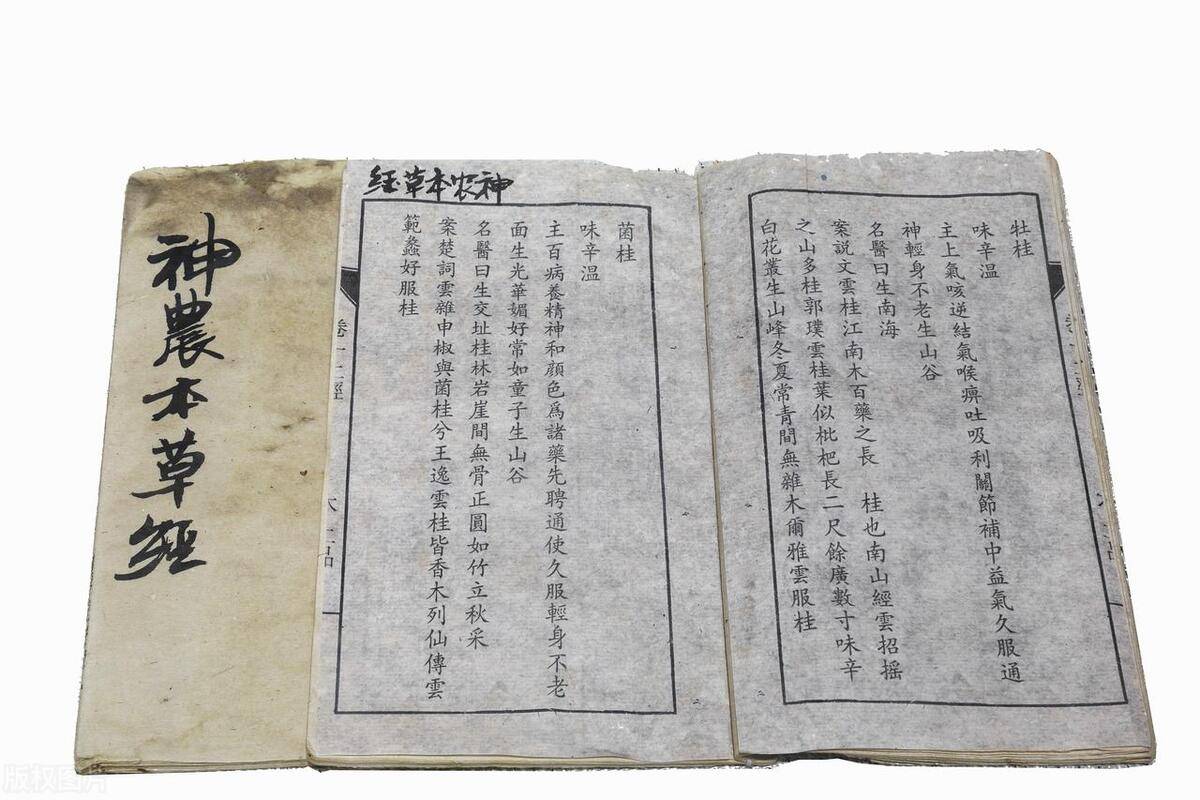 牡桂
味辛溫
主上氣咳逆結氣喉痹吐吸利關節補中益氣久服通
神輕身不老生山谷
名醫曰生南海
案説文雲桂江南木百藥之長　桂也南山經雲招摇
之山多桂郭璞雲桂葉似枇杷長二尺餘廣數寸味辛
白花叢生山峰冬夏常青間無雜木爾雅雲服桂
神农本草经
菌桂
味辛溫
主百病養精神和顏色爲諸藥先聘通使久服輕身不老
面生光華媚好常如童子生山谷
名醫曰生交址桂林岩崖間無骨正圓如竹立秋采
案楚詞雲雜申椒與菌桂兮王逸雲桂皆香木列仙傳雲
範蠡好服桂
神農本草經
版权图片